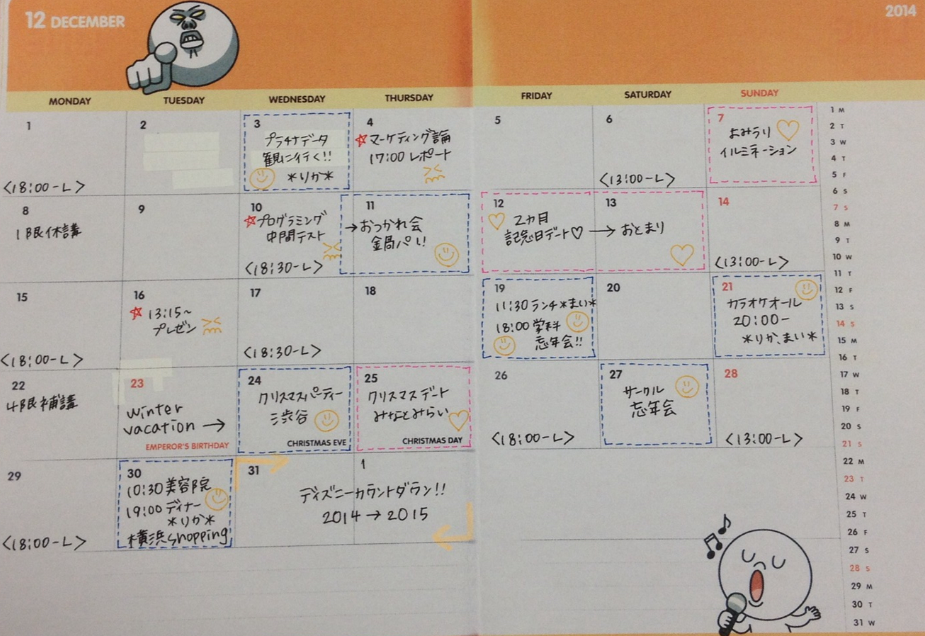 12 DECEMBER
2014
MONDAY TUESDAY WEDNESDAY THURSDAY FRIDAY SATURDAY SUNDAY
1
<18:00-L>
2
3
プラチナデータ
観に行く!!
*りか*
4
☆マーケティング論
17:00 レポート
5
6
<13:00-L>
7
よみうり
イルミネーション
8
1限休講
9
10
☆プログラミング
中間テスト
<18:30-L>
11
→おつかれ会
金局パ!
12
2カ月
記念日デート♡→
13
おとまり
14
<13:00-L>
15
<18:00-L>
16
☆13:15~
プレゼン
17
<18:30-L>
18
19
11:30 ランチ*まい*
18:00 学科
忘年会!!
20
21
カラオケオール
20:00-
*りか、まい*
22
4限補講
23
winter
vacation →
EMPEROR'S BIRTHDAY
24
クリスマスパーティー
渋谷
CHRISTMAS EVE
25
クリスマスデート
みなとみらい
CHRISTMAS DAY
26
<18:00-L>
27
サークル
忘年会
28
<13:00-L>
29
<18:00-L>
30
10:30 美容院
19:00 ディナー
*りか*
横浜shopping
31
1
ディズニーカウントダウン!!
2014→2015
1 M
2 T
3 W
4 T
5 F
6 S
7 S
8 M
9 T
10 W
11 T
12 F
13 S
14 S
15 M
16 T
17 W
18 T
19 F
20 S
21 S
22 M
23 T
24 W
25 T
26 F
27 S
28 S
29 M
30 T
31 W